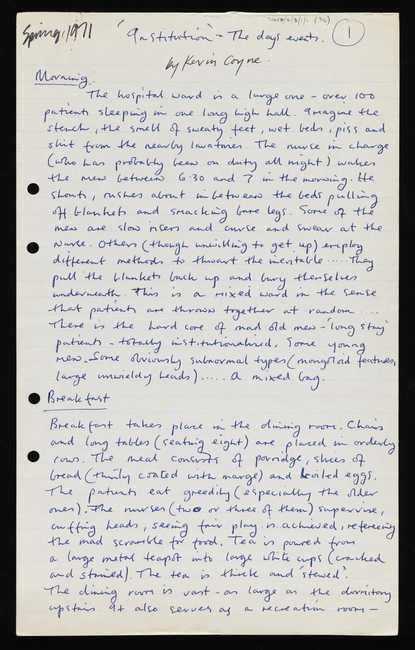 Spring, 1971
'Institution' - The days events.
1
by Kevin Coyne.
Morning.
The hospital ward is a large one - over 100
patients sleeping in one long high hall. Imagine the
stench, the smell of sweaty feet, wet beds, piss and
shit from the nearby lavatories. The nurse in charge
(who has probably been on duty all night) wakes
the men between 6.30 and 7 in the morning. He
shouts, rushes about inbetween the beds pulling
off blankets and smacking bare legs. Some of the
men are slow risers and curse and swear at the
nurse. Others (though unwilling to get up) employ
different methods to thwart the inevitable.....They
pull the blankets back up and bury themselves
underneath. This is a mixed ward in the sense
that patients are thrown together at random....
There is the hard core of mad old men - 'long stay'
patients - totally institutionalized. Some young
men. Some obviously subnormal types (mongoloid features,
large unwieldy heads)..... A mixed bag.
Breakfast
Breakfast takes place in the dining room. Chairs
and long tables (seating eight) are placed in orderly
rows. The meal consists of porridge, slices of
bread (thinly coated with marge) and boiled eggs.
The patients eat greedily (especially the older
ones). The nurses (two or three of them) supervise,
cuffing heads, seeing fair play is achieved, refereeing
the mad scramble for food. Tea is poured from
a large metal teapot into large white cups (cracked
and stained). The tea is thick and 'stewed'.
The dining room is vast - as large as the dormitory
upstairs. It also serves as a recreation room -